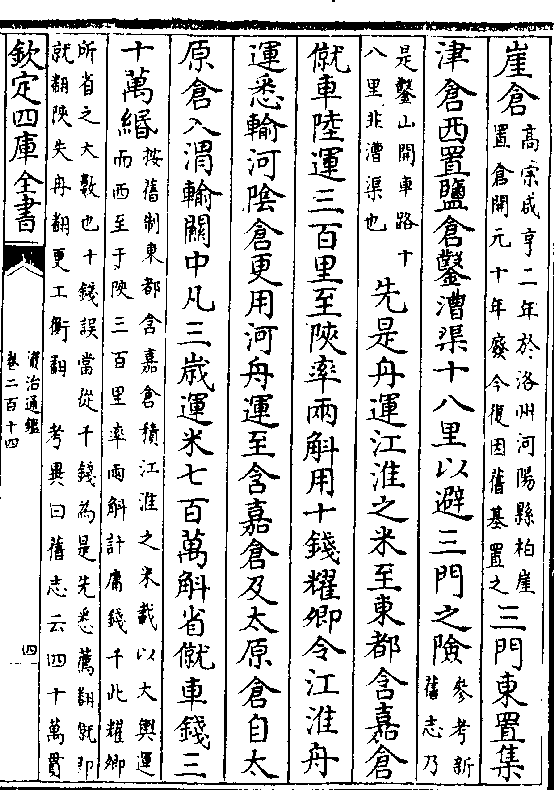 崖倉高宗咸亨二年於洛州河陽縣柏崖置倉開元十年廢今復因舊基置之三門東置集
津倉西置鹽倉鑿漕渠十八里以避三門之險參考新舊志乃
是鑿山開車路十八里非漕渠也先是舟運江淮之米至東都含嘉倉
僦車陸運三百里至陝率兩斛用十錢耀卿令江淮舟
運悉輸河隂倉更用河舟運至含嘉倉及太原倉自太
原倉入渭輸關中凡三歲運米七百萬斛省僦車錢三
十萬緡按舊制東都含嘉倉積江淮之米載以大輿運而西至于陝三百里率兩斛計庸錢千此耀卿
所省之大數也十錢誤當從千錢為是先悉薦翻就即就翻陝失冉翻更工衡翻 考異曰舊志云四十萬貫
欽定四庫全書
資治通鑑
卷二百十四
四